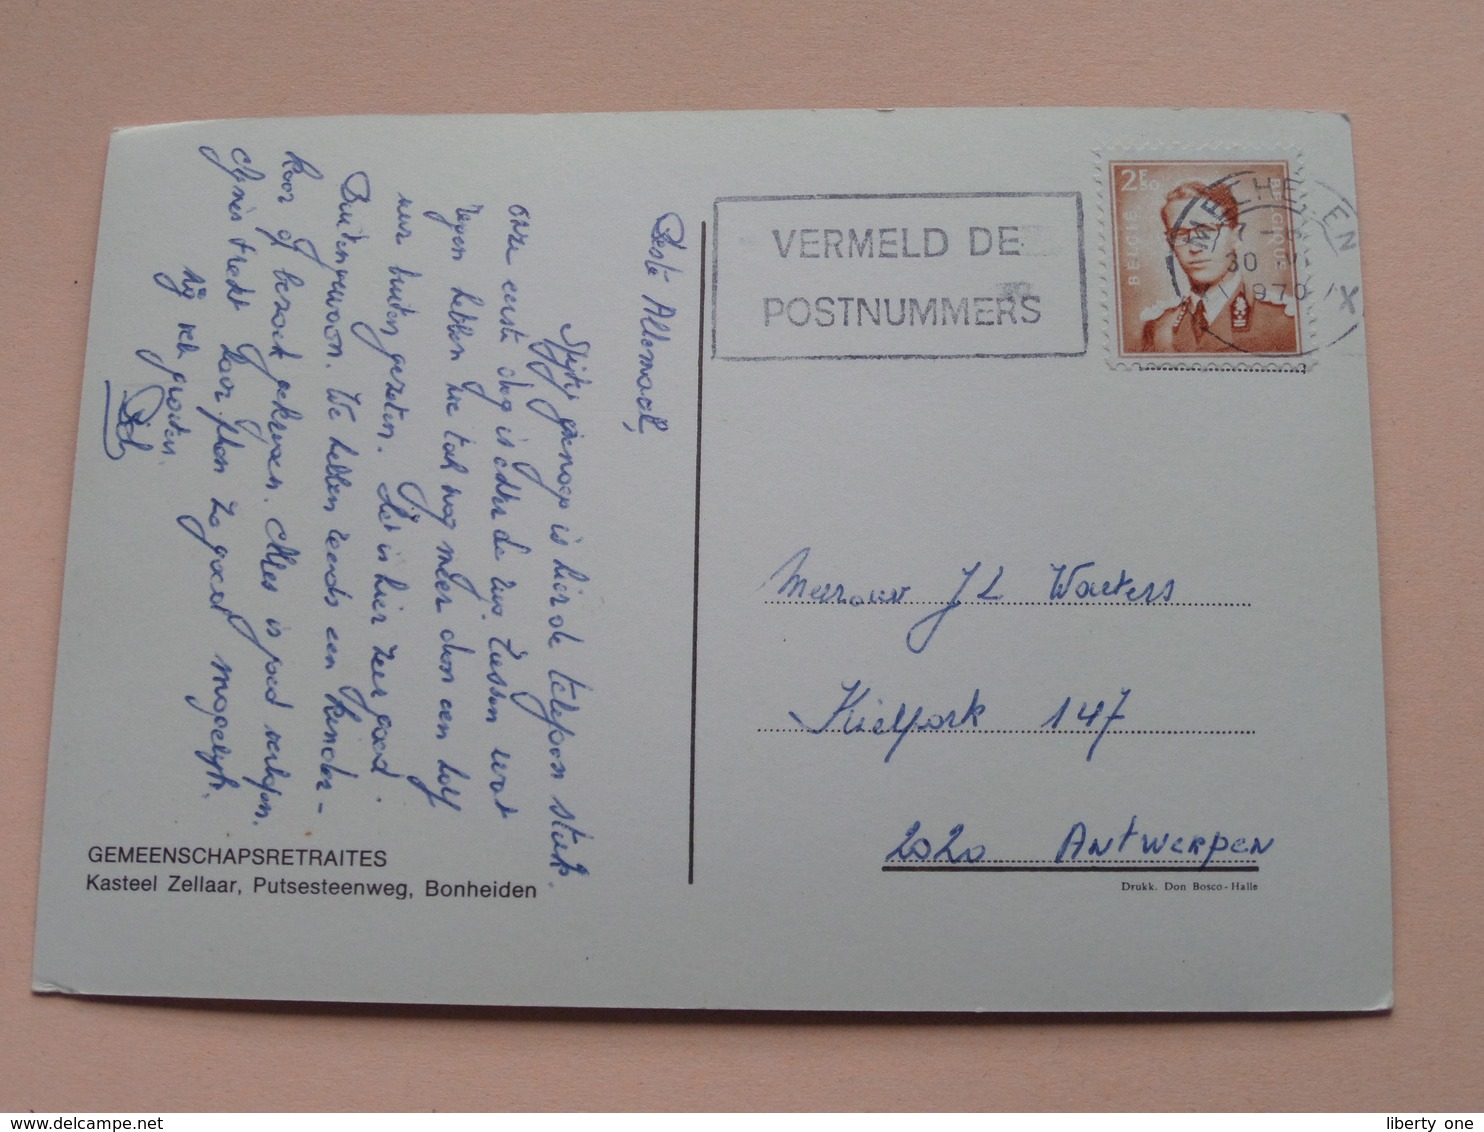 Beste Allemaal,
Spijtig genoeg is hier de telefoon stuk.
onze eerste dag is echter de zus tussen wat
regen hebben we toch nog meer dan een half
uur buiten gezeten. Het is hier zeer goed.
Buitengewoon. We hebben reeds een kinder-
koor op bezoek gekregen. Alles is goed verlopen.
Agnes treedt daar van zo goed mogelijk.
vele groeten.
GEMEENSCHAPSRETRAITES
Kasteel Zellaar, Putsesteenweg, Bonheiden
VERMELD DE
POSTNUMMERS
2F50
BELGIË
BELGIQUE
MECHELEN
30
1970
Mevrouw J L Wauters
Kielpark 147
2020 Antwerpen
Drukk. Don Bosco - Halle
www.delcampe.net
liberty one